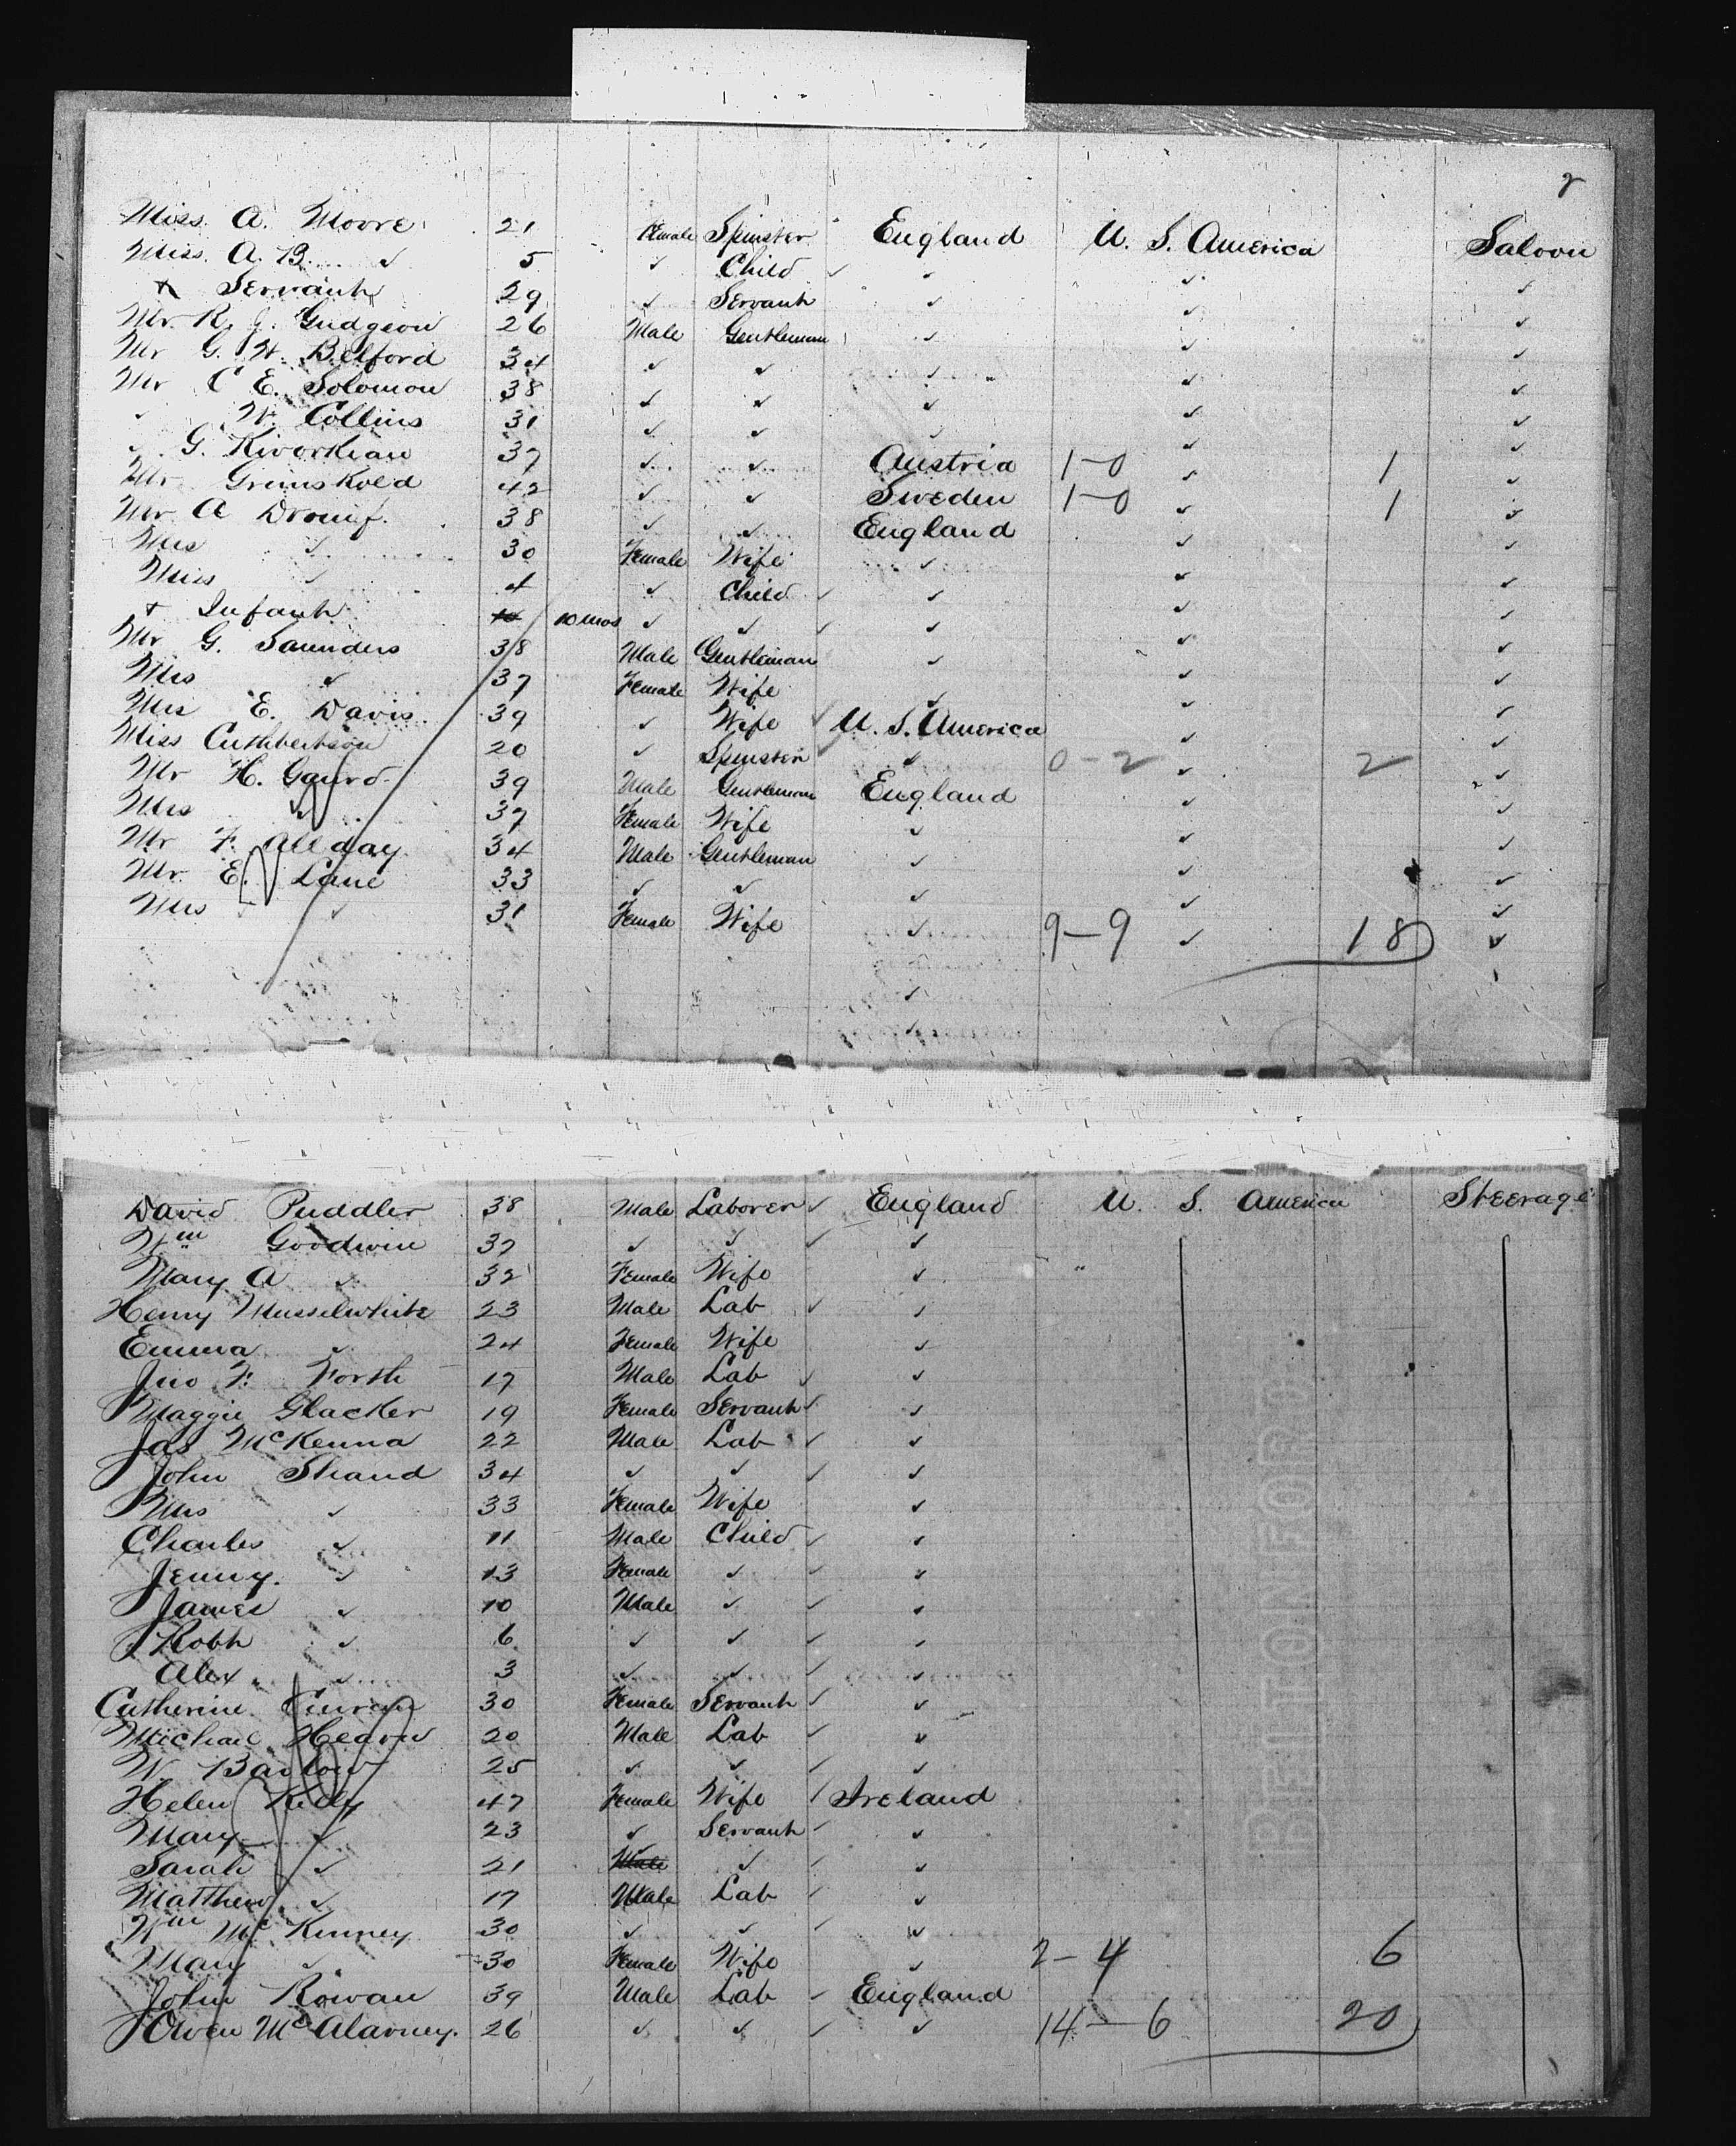 2
Miss. A. Moore 21 Female Spinster England U. S. America Saloon
Miss. A. B. ✓ 5 ✓ Child ✓ ✓ ✓ ✓
+ Servant 29 ✓ Servant ✓ ✓ ✓
Mr. R. G. Gudgeon 26 Male Gentleman ✓ ✓ ✓
Mr G. W. Belford 34 ✓ ✓ ✓ ✓ ✓
Mr C E. Solomon 38 ✓ ✓ ✓ ✓ ✓
✓ W. Collins 31 ✓ ✓ ✓ ✓ ✓
✓ G. Kivorkian 37 ✓ ✓ Austria 1-0 ✓ 1 ✓
Mr Grimskold 42 ✓ ✓ Sweden 1-0 ✓ 1 ✓
Mr. A 38 ✓ ✓ England ✓ ✓
Mrs ✓ 30 Female Wife ✓ ✓ ✓
Miss ✓ 4 ✓ Child ✓ ✓ ✓ ✓
+ Infant 10 10 mos ✓ ✓ ✓ ✓ ✓ ✓
Mr G. Saunders 38 Male Gentleman ✓ ✓ ✓
Mrs ✓ 37 Female Wife ✓ ✓ ✓
Mrs E. Davis 39 ✓ Wife ✓ U. S. America ✓ ✓
Miss Cuthbertson 20 ✓ Spinster ✓ ✓ 0-2 ✓ 2 ✓
Mr H. Gaurd 39 Male Gentleman England ✓ ✓
Mrs ✓ 37 Female Wife ✓ ✓ ✓
Mr F. Allday 34 Male Gentleman ✓ ✓ ✓
Mr. E. Lane 33 ✓ ✓ ✓ ✓ ✓
Mrs ✓ ✓ 31 Female Wife ✓ 9-9 ✓ 18 ✓
David Puddler 38 Male Laborer ✓ England U. S. America Steerage
Wm Goodwin 37 ✓ ✓ ✓ ✓
Mary A ✓ 32 Female Wife ✓
Henry Musselwhite 23 Male Lab ✓ ✓
Emma ✓ 24 Female Wife ✓
Jno F. North 17 Male Lab ✓ ✓
Maggie Glacker 19 Female Servant ✓ ✓
Jas McKenna 22 Male Lab ✓ ✓
John Shand 34 ✓ ✓ ✓ ✓
Mrs ✓ 33 Female Wife ✓
Charles ✓ 11 Male Child ✓ ✓
Jenny ✓ 13 Female ✓ ✓ ✓
James ✓ 10 Male ✓ ✓ ✓
Robt ✓ 6 ✓ ✓ ✓ ✓
Alex ✓ 3 ✓ ✓ ✓ ✓
Catherine Curran 30 Female Servant ✓ ✓
Michael Hearn 20 Male Lab ✓ ✓
W Barlow 25 ✓ ✓ ✓ ✓
Helen Kelly 47 Female Wife / Ireland
Mary ✓ 23 ✓ Servant ✓ ✓
Sarah ✓ 21 Male ✓ ✓ ✓ ✓
Matthew ✓ 17 Male Lab ✓ ✓
Wm McKinney 30 ✓ ✓ ✓ ✓
Mary ✓ 30 Female Wife ✓ 2-4 6
John Rowan 39 Male Lab ✓ England
Owen McAlavney. 26 ✓ ✓ ✓ ✓ 14-6 20